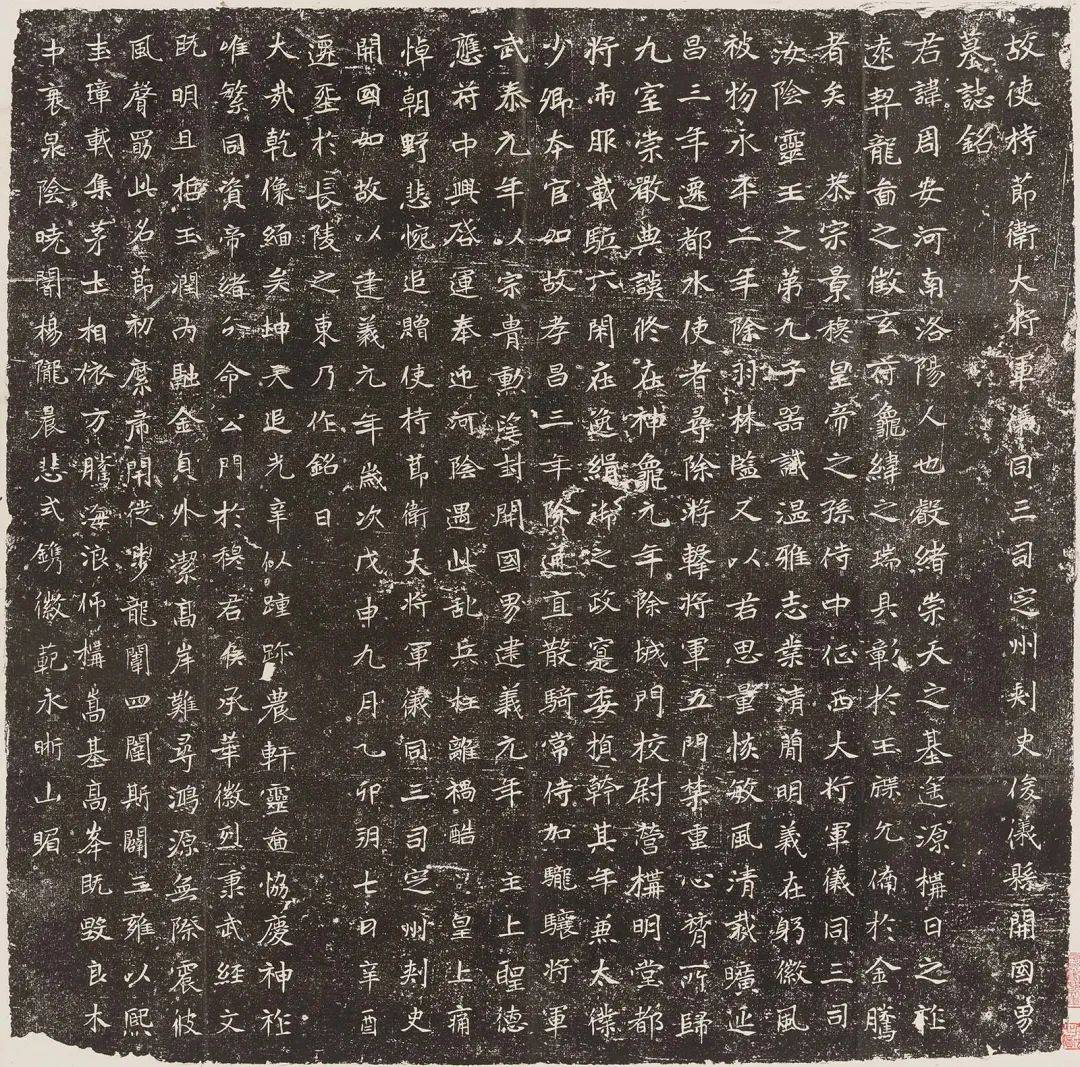 故使持節衛大將軍儀同三司定州刺史俊儀縣開國男
墓誌銘
君諱周安河南洛陽人也叡緒崇天之基遥源構日之祚
遠契龍啚之徵玄符龜緯之瑞具彰於玉牒允俻於金騰
者矣 恭宗景穆皇帝之孫侍中征西大將軍儀同三司
汝陰靈王之第九子器識温雅志業清簡明義在躬徽風
被物永平二年除羽林監又以君思量恢敏風清載曠延
昌三年遷都水使者尋除游擊將軍五門禁重心膂所歸
九室崇嚴典謨攸在神龜元年除城門校尉營構明堂都
將兩服載驂六閑在選緝御之政寔委楨幹其年兼太僕
少卿本官如故孝昌三年除通直散騎常侍加龍驤將軍
武泰元年以宗貴勳望封開國男建義元年 主上聖德
應符中興啓運奉迎河陰遇此亂兵枉離禍酷 皇上痛
悼朝野悲惋追贈使持節衛大將軍儀同三司定州刾史
開國如故以建義元年歲次戊申九月乙卯朔七日辛酉
遷塋於長陵之東乃作銘曰
大哉乾像緬矣坤天追光辛似踵跡農軒靈啚恊慶神祚
唯繁同資帝緒分命公門於穆君侯承華徽烈秉武經文
既明且栢玉潤内融金貞外潔高岸難尋鴻源無際震彼
風聲勗此名節初縻帝閑徙涉龍闈四闥斯闢三雍以熙
圭璋載集茅土相依方騰海浪仰構嵩基高峯既毀良木
中衰泉陰曉闇楊隴晨悲式鐫徽範永晰山嵋